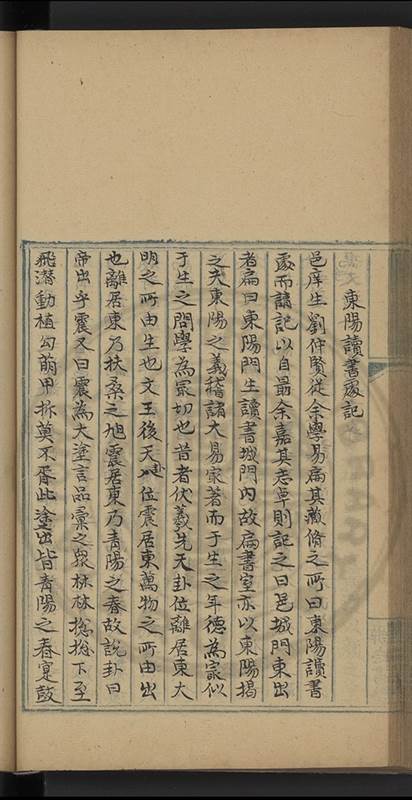 東陽讀書處記
邑庠生劉仲賢從余學易扁其藏脩之所曰東陽讀書
處而請記以自最余嘉其志卓則記之曰邑城門東出
者扁曰東陽門生讀書城門內故扁書室亦以東陽揭
之夫東陽之義稽諸大易家著而于生之年德為最似
于生之問學為最切也昔者伏羲先天卦位離居東大
明之所由生也文王後天卦位震居東萬物之所由出
也離居東乃扶桑之旭震居東乃青陽之春故說卦曰
帝出乎震又曰震為大塗言品彙之衆林林揔揔下至
飛潛動植勾萠甲拆莫不胥此塗出皆青陽之春寔鼓